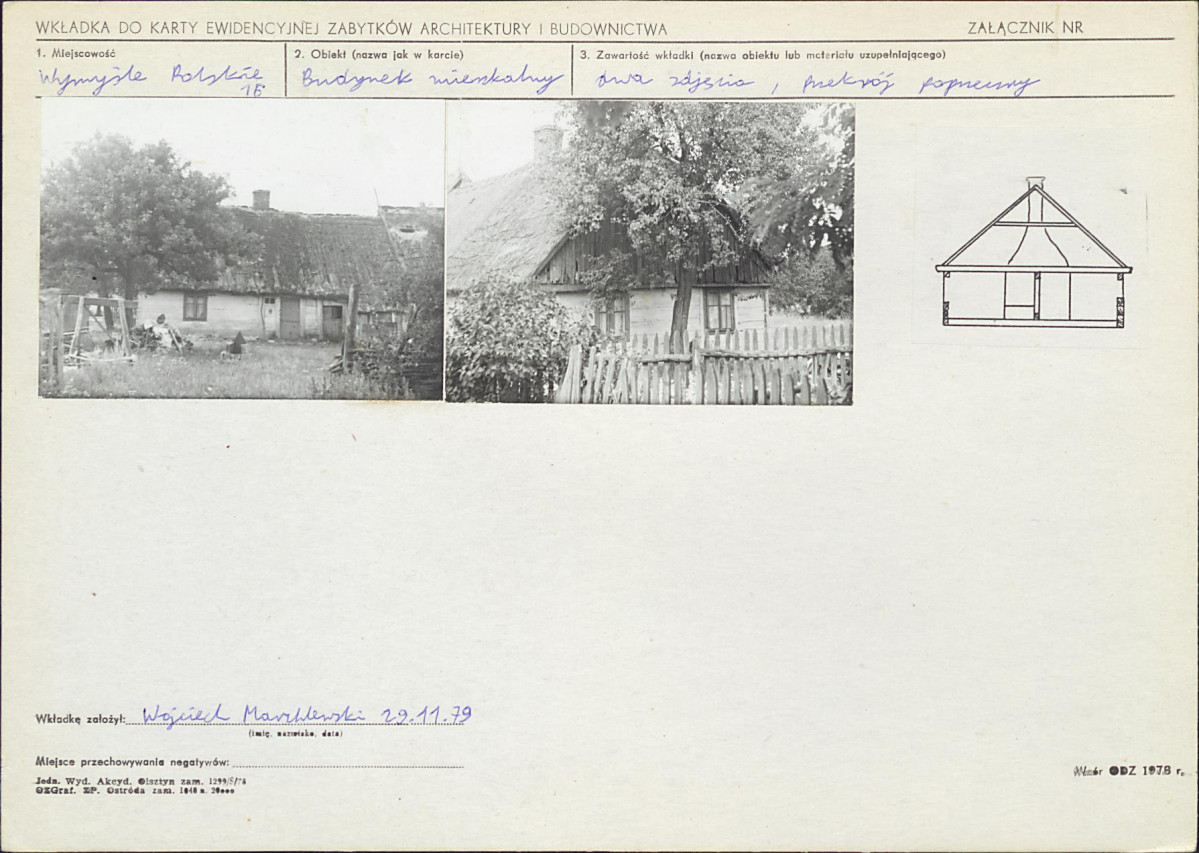 WKŁADKA DO KARTY EWIDENCYJNEJ ZABYTKÓW ARCHITEKTURY I BUDOWNICTWA ZAŁĄCZNIK NR
1. Miejscowość 2. Obiekt (nazwa jak w karcie) 3. Zawartość wkładki (nazwa obiektu lub materiału uzupełniającego)
Wymyśle Polskie Budynek mieszkalny dwa zdjęcia, przekrój poprzeczny
Wkładkę założył: Wojciech Marchlewski 29.11.79
(imię, nazwisko, data)
Miejsce przechowywania negatywów:
Jedn. Wyd. Akcyd. Olsztyn zam. 1299/S/78
OZGraf. ZP. Ostróda zam.
Wzór ODZ 1978 r.